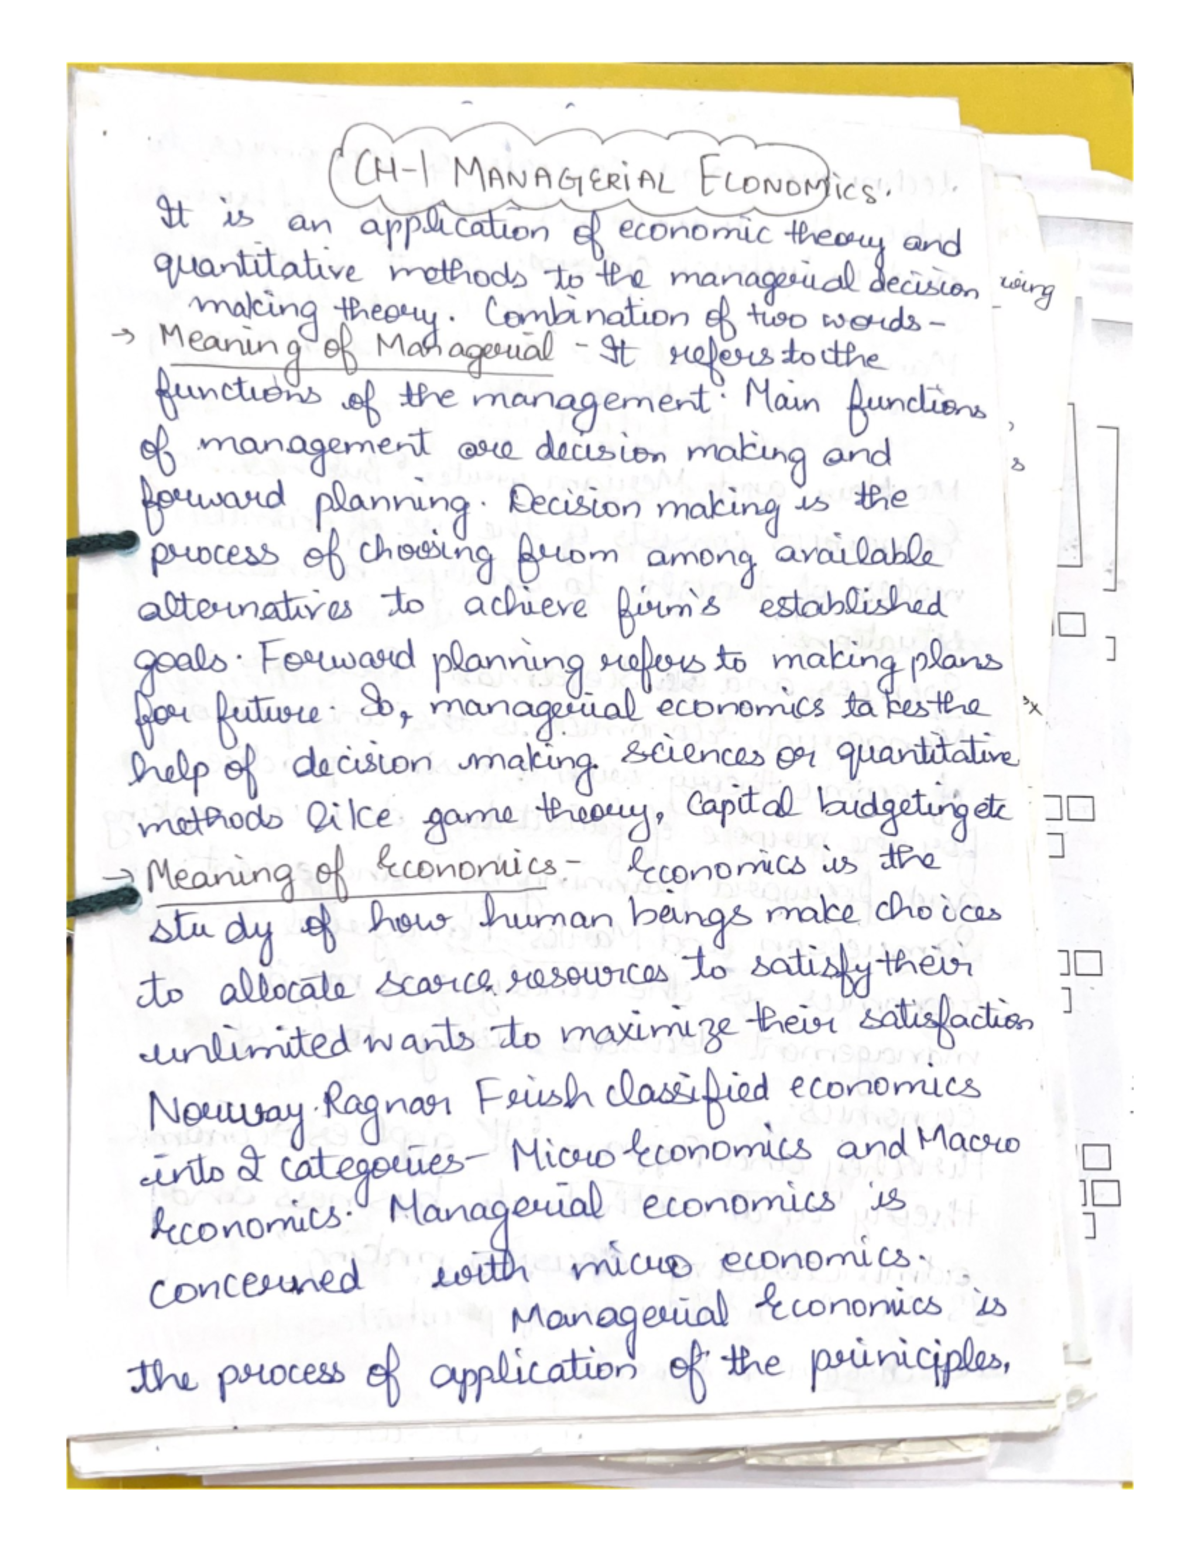 CH-1 MANAGERIAL ECONOMICS.
It is an application of economic theory and
quantitative methods to the managerial decision
making theory. Combination of two words-
→ Meaning of Managerial - It refers to the
functions of the management. Main functions
of management are decision making and
forward planning. Decision making is the
process of choosing from among available
alternatives to achieve firm's established
goals. Forward planning refers to making plans
for future. So, managerial economics takes the
help of decision making sciences or quantitative
methods like game theory, Capital budgeting etc
→ Meaning of Economics- Economics is the
study of how human beings make choices
to allocate scarce resources to satisfy their
unlimited wants to maximize their satisfaction
Norway. Ragnar Frish classified economics
into 2 categories- Micro Economics and Macro
Economics. Managerial economics is
concerned with micro economics.
Managerial Economics is
the process of application of the priniciples,